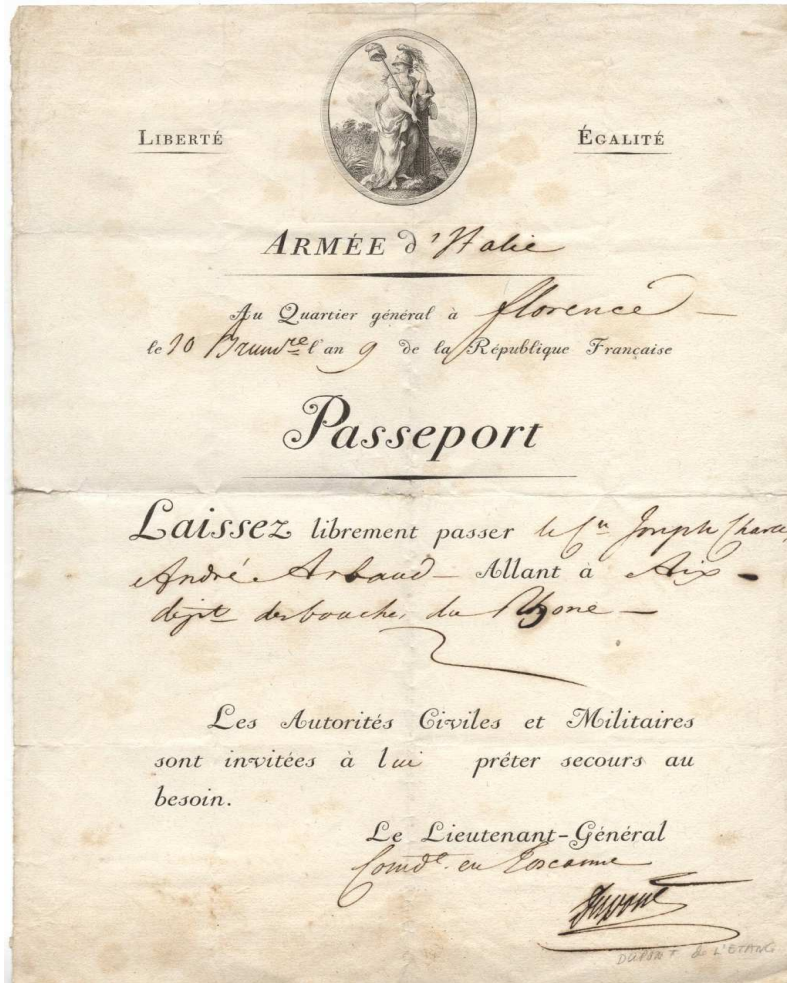 LIBERTÉ
ÉGALITÉ
ARMÉE d'Italie
Au Quartier général à florence
le 10 Brumre l'an 9 de la République Française
Passeport
Laissez librement passer le Cn Joseph Charles
André Arbaud - Allant à Aix -
dept des bouches du Rhone -
Les Autorités Civiles et Militaires
sont invitées à lui prêter secours au
besoin.
Le Lieutenant-Général
Comdt. en Toscanne
Dupont
DUPONT de L'ETANG